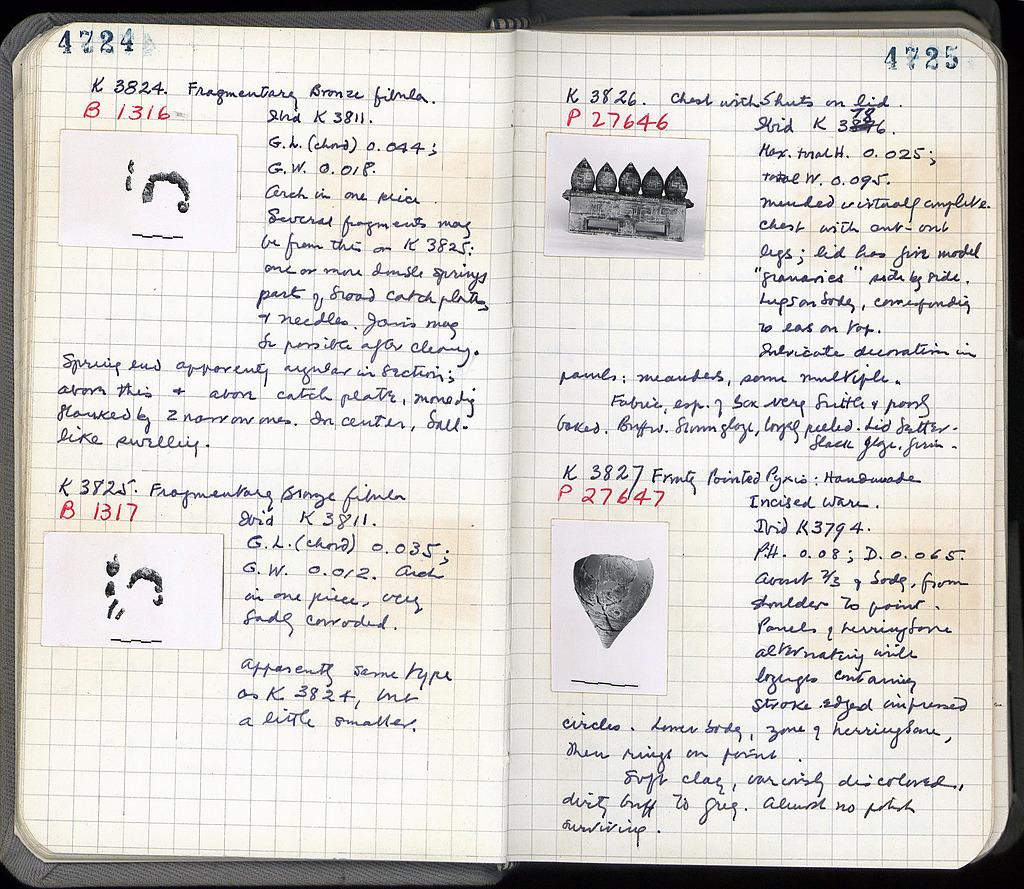 4724
K 3824. Fragmentary Bronze fibula.
B 1316
Ibid K 3811.
G.L. (chord) 0.044;
G.W. 0.018.
Arch in one piece.
Several fragments may
be from this or K 3825:
one or more double springs
part of broad catch plates
+ needles. Joins may
be possible after cleaning.
Spring end apparently in section;
above this + above catch plate,
flanked by 2 narrow ones. In center, ball-
like swelling.
K 3825. Fragmentary Bronze fibula
B 1317
Ibid K 3811.
G.L. (chord) 0.035;
G.W. 0.012. Arch
in one piece, very
badly corroded.
Apparently same type
as K 3824, but
a little smaller.
4725
K 3826. Chest with on lid.
P 27646
Ibid K 78
Max. total H. 0.025;
total W. 0.095.
Mended virtually complete.
Chest with cut-out
legs; lid has five model
"granaries" side by side.
Lugs on body, corresponding
to ears on top.
Intricate decoration in
panels: meanders, some multiple.
Fabric, esp. of box very brittle + poorly
baked. Buff. Brown glaze, largely peeled. Lid better-
black glaze, firm.
K 3827 Frmty Pointed Pyxis: Handmade
P 27647
Incised Ware.
Ibid K 3794.
P.H. 0.08; D. 0.065.
About 2/3 of body, from
shoulder to point.
Panels of herringbone
alternating with
lozenges containing
stroke-edged impressed
circles. Lower body, zone of herringbone,
then rings on point.
Soft clay, variously discolored,
dirty buff to grey. Almost no polish
surviving.